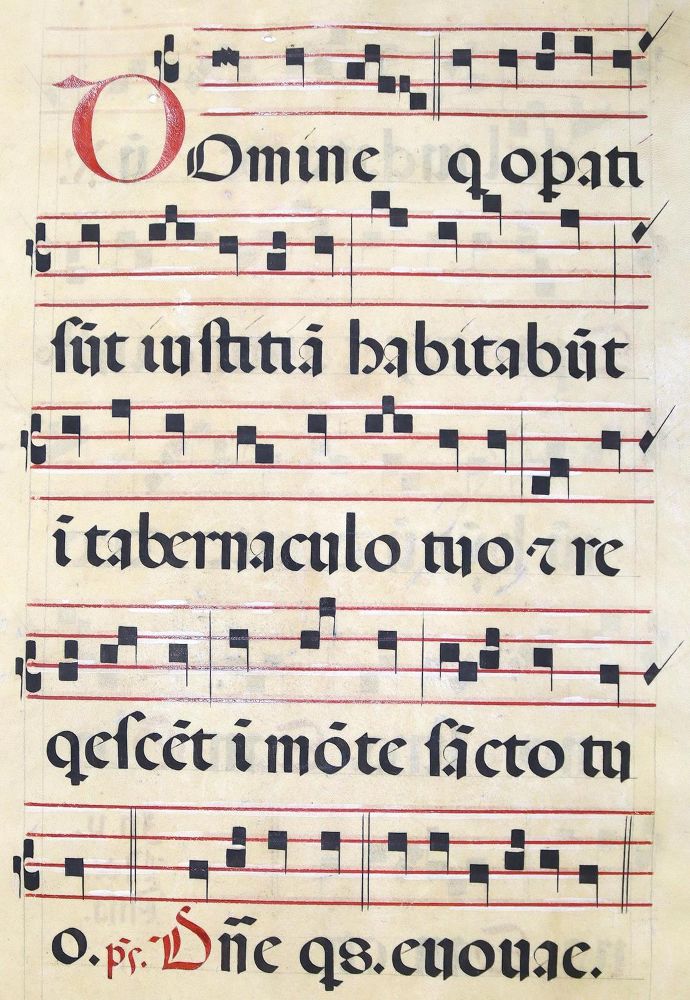 Domine q opati
sūt iustitiā habitabūt
ī tabernaculo tuo ⁊ re
qescēt ī mōte sācto tu
o. ps. Dñe qs. euouae.